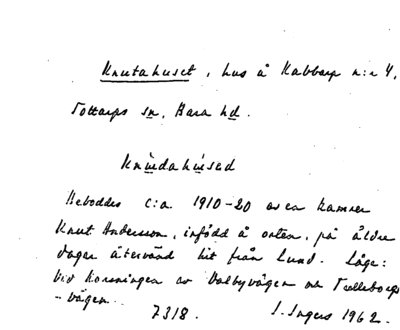 Knutahuset, hus å Kabbarp n:r 4,
Tottarps sn, Bara hd.
Knŭdahŭsed
Beboddes c:a 1910-20 av en kamrer
Knut Andersson, infödd å orten, på äldre
dagar återvänd hit från Lund. Läge:
Vid korsningen av Dalbyvägen och Trelleborgs-
-vägen.
7318. I. Ingers 1962.